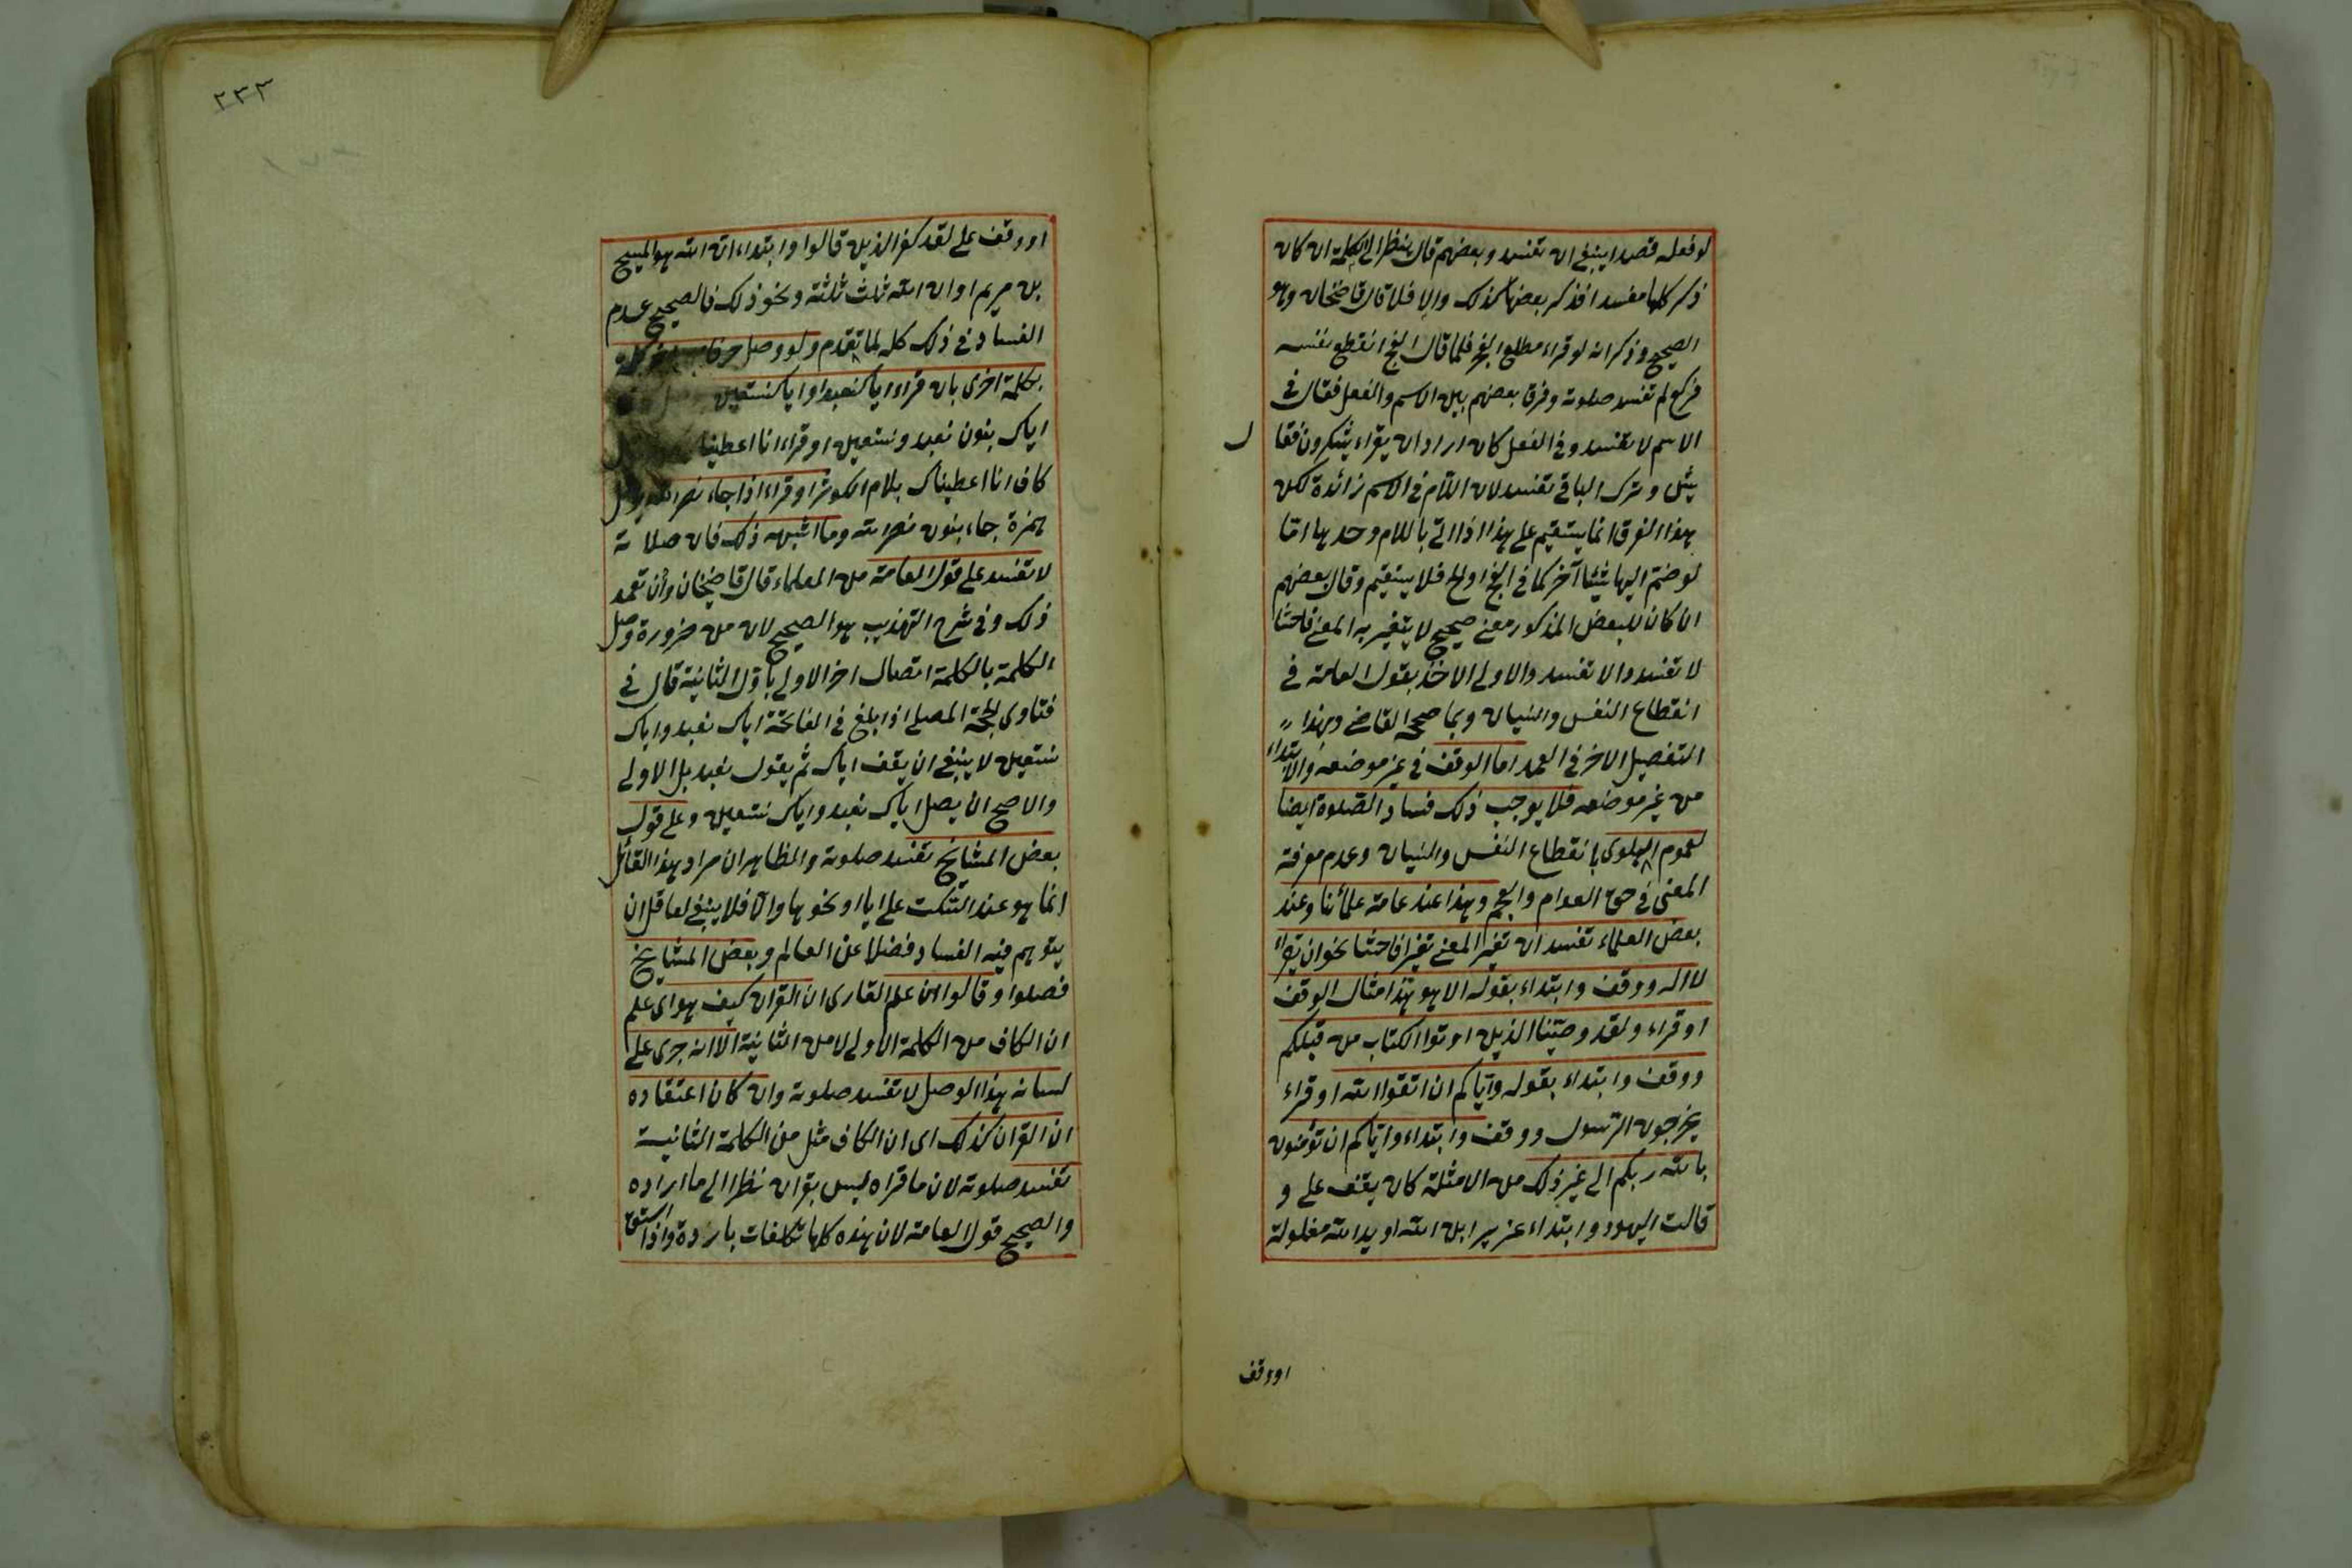 لو فعله قصدا ينبغى ان تفسد وبعضهم قال ينظر الى الكلمة ان كان
ذكر كلها مفسدا فذكر بعضها كذلك والا فلا قال قاضيخان وهو
الصحيح وذكر انه لو قراء مطلع الفجر فلما قال الفج انقطع نفسه
فركع لم تفسد صلوته وفرق بعضهم بين الاسم والفعل فقال فى
الاسم لا تفسد وفى الفعل كان اراد ان يقراء يشكرون فقا
ل
يش وترك الباقى تفسد لان اللام فى الاسم زائدة لكن
هذا الفرق انما يستقيم على هذا اذا اتى باللام وحدها اما
لو ضم اليها شيئا آخر كما فى الفج اولج فلا يستقيم وقال بعضهم
ان كان للبعض المذكور معنى صحيح لا يتغير به المعنى فاحشا
لا تفسد والا تفسد والاولى الاخذ بقول العامة فى
انقطاع النفس والنسيان وبما صححه القاضى وبهذا
التفصيل الاخر فى العمد اما الوقف فى غير موضعه والابتداء
من غير موضعه فلا يوجب ذلك فساد الصلوة ايضا
لعموم البلوى بانقطاع النفس والنسيان وعدم معرفة
المعنى فى حق العوام والعجم وهذا عند عامة علمائنا وعند
بعض العلماء تفسد ان تغير المعنى تغيرا فاحشا نحو ان يقراء
لا اله ووقف وابتداء بقوله الا هو هذا مثال الوقف
او قراء ولقد وصينا الذين اوتوا الكتاب من قبلكم
ووقف وابتداء بقوله واياكم ان اتقوا الله او قراء
يخرجون الرسول ووقف وابتداء واياكم ان تؤمنون
بالله ربكم الى غير ذلك من الامثلة كان يقف على و
قالت اليهود وابتداء عزير ابن الله او يد الله مغلولة
او وقف
٢٣٣
او وقف على لقد كفر الذين قالوا وابتداء ان الله هو المسيح
بن مريم او ان الله ثلث ثلثة ونحو ذلك فالصحيح عدم
الفساد فى ذلك كله لما تقدم ولو وصل حرفا كلمة
بكلمة اخرى بان قراء اياكنعبد او اياكنستعين
اياك بنون نعبد ونستعين او قراء انا اعطينا
كاف انا اعطيناك بلام الكوثر او قراء اذا جاء نصر الله
همزة جاء بنون نصر الله وما اشبه ذلك فان صلاته
لا تفسد على قول العامة من العلماء قال قاضيخان وأن تعمد
ذلك وفى شرح التهذيب هو الصحيح لان من ضرورة وصل
الكلمة بالكلمة اتصال اخر الاولى باول الثانية قال فى
فتاوى الحجة المصلى اذا بلغ فى الفاتحة اياك نعبد واياك
نستعين لا ينبغى ان يقف اياك ثم يقول نعبد بل الاولى
والاصح ان يصل اياك نعبد واياك نستعين وعلى قول
بعض المشايخ تفسد صلوته والظاهر ان مراد هذا القائل
انما هو عند السكت على ايا او نحوها والا فلا ينبغى لعاقل ان
يتوهم فيه الفساد فضلا عن العالم وبعض المشايخ
فصلوا وقالوا ان علم القارى ان القرآن كيف هو اى علم
ان الكاف من الكلمة الاولى لا من الثانية الا انه جرى على
لسانه هذا الوصل لا تفسد صلوته وان كان اعتقاده
ان القرآن كذلك اى ان الكاف مثل من الكلمة الثانية
تفسد صلوته لان ما قراه ليس بقران نظرا الى ما اراده
والصحيح قول العامة لان هذه كلها تكلفات باردة واذا